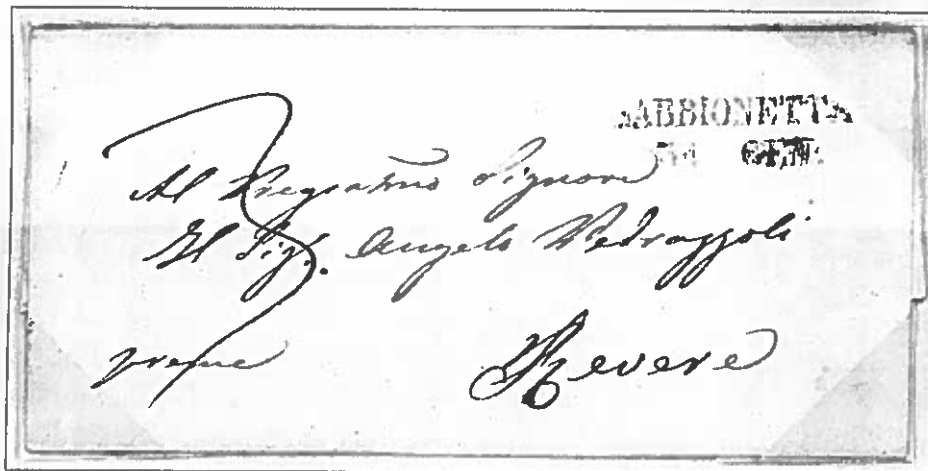 ABBIONETTA
GEN.
Al Pregiatmo Signore
Il Sig.r Angelo Vedrazzoli
Revere